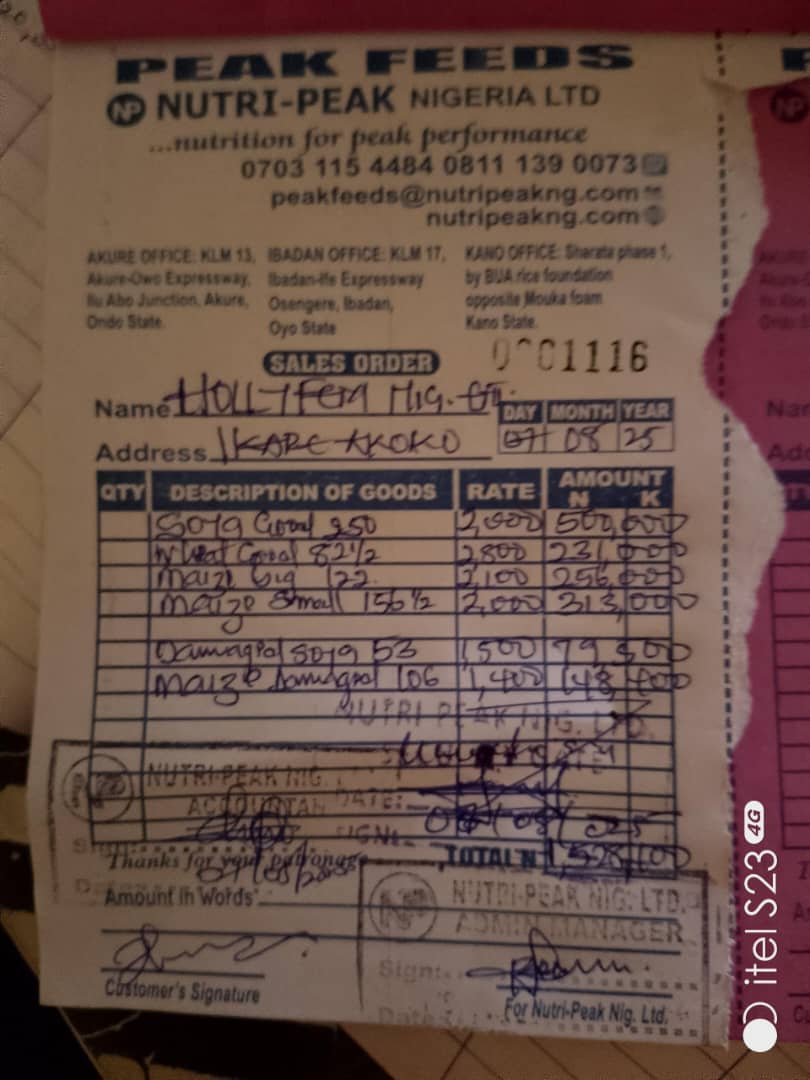 PEAK FEEDS
NP NUTRI-PEAK NIGERIA LTD
...nutrition for peak performance
0703 115 4484 0811 139 0073
peakfeeds@nutripeakng.com
nutripeakng.com
AKURE OFFICE: KLM 13, Akure-Owo Expressway, Ilu Abo Junction, Akure, Ondo State.
IBADAN OFFICE: KLM 17, Ibadan-Ife Expressway Osengere, Ibadan, Oyo State
KANO OFFICE: Sharata phase 1, by BUA rice foundation opposite Mouka foam Kano State.
SALES ORDER 0001116
Name HOLLYFEM NIG.
DAY MONTH YEAR
Address IKARE AKOKO 07 08 25
QTY DESCRIPTION OF GOODS RATE AMOUNT N K
Soya Good 250 2,000 500,000
Wheat Good 82 1/2 2800 231,000
Maize big 122 2,100 256,000
Maize Small 156 1/2 2,000 313,000
Damaged Soya 53 1,500 79,500
Maize Damaged 106 1,400 148,400
NUTRI PEAK NIG. LTD.
NUTRI-PEAK NIG.
DATE:
SIGN:
Thanks for your patronage
TOTAL N 1,528,100
Amount in Words
NUTRI-PEAK NIG. LTD.
ADMIN MANAGER
Sign:
Customer's Signature
For Nutri-Peak Nig. Ltd.
Date
itel S23 4G